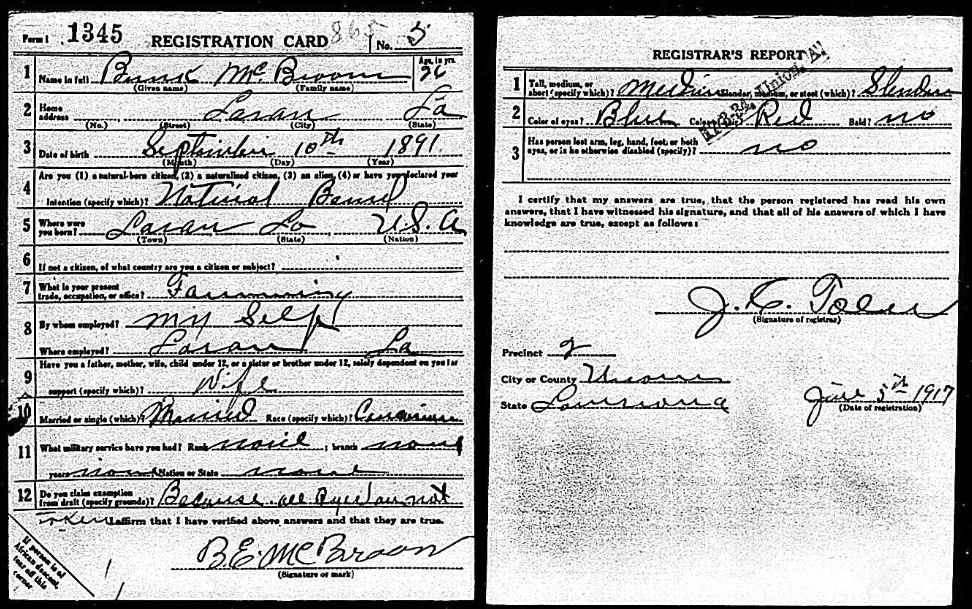 Form 1 1345 REGISTRATION CARD 865 No. 5
1 Name in full Bunk McBroom Age, in yrs. 26
(Given name) (Family name)
2 Home address Laran La
(No.) (Street) (City) (State)
3 Date of birth September 10th 1891
(Month) (Day) (Year)
4 Are you (1) a natural-born citizen, (2) a naturalized citizen, (3) an alien, (4) or have you declared your
intention (specify which)? Natural Born
5 Where were you born? Laran La U.S.A
(Town) (State) (Nation)
6 If not a citizen, of what country are you a citizen or subject?
7 What is your present trade, occupation, or office? Farmming
8 By whom employed? My Self
Where employed? Laran La
9 Have you a father, mother, wife, child under 12, or a sister or brother under 12, solely dependent on you for
support (specify which)? Wife
10 Married or single (which)? Married Race (specify which)? Caucasian
11 What military service have you had? Rank none ; branch none
years none Nation or State none
12 Do you claim exemption from draft (specify grounds)? Because not
I affirm that I have verified above answers and that they are true.
B.E. McBroom
(Signature or mark)
If person is of African descent, tear off this corner
REGISTRAR'S REPORT
1 Tall, medium, or short (specify which)? Medium Slender, medium, or stout (which)? Slender
2 Color of eyes? Blue Color Red Bald? no
3 Has person lost arm, leg, hand, foot, or both eyes, or is he otherwise disabled (specify)? no
I certify that my answers are true, that the person registered has read his own
answers, that I have witnessed his signature, and that all of his answers of which I have
knowledge are true, except as follows:
J. C.
(Signature of registrar)
Precinct 2
City or County Union
State Louisiana June 5th 1917
(Date of registration)